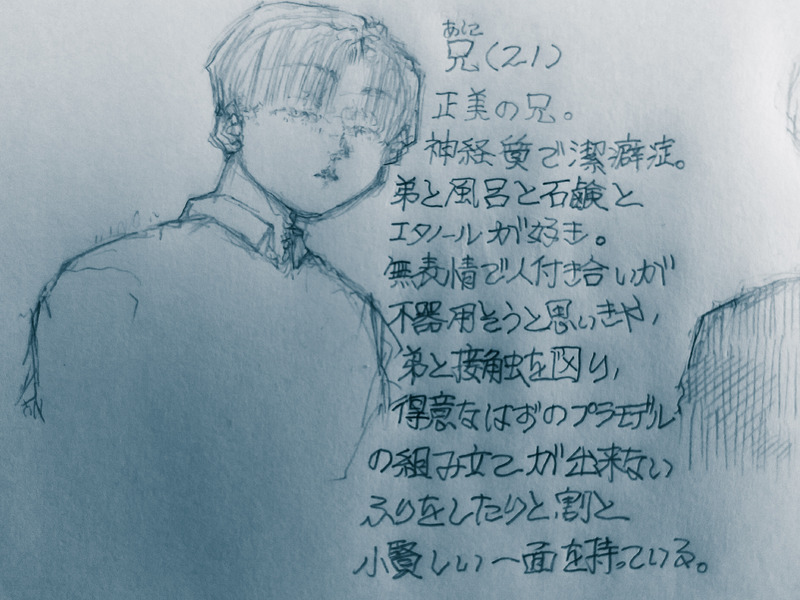 あに
兄(21)
正美の兄。
神経質で潔癖症。
弟と風呂と石鹸と
エタノールが好き。
無表情で人付き合いが
不器用そうと思いきや、
弟と接触を図り、
得意なはずのプラモデル
の組み立てが出来ない
ふりをしたりと割と
小賢しい一面を持っている。